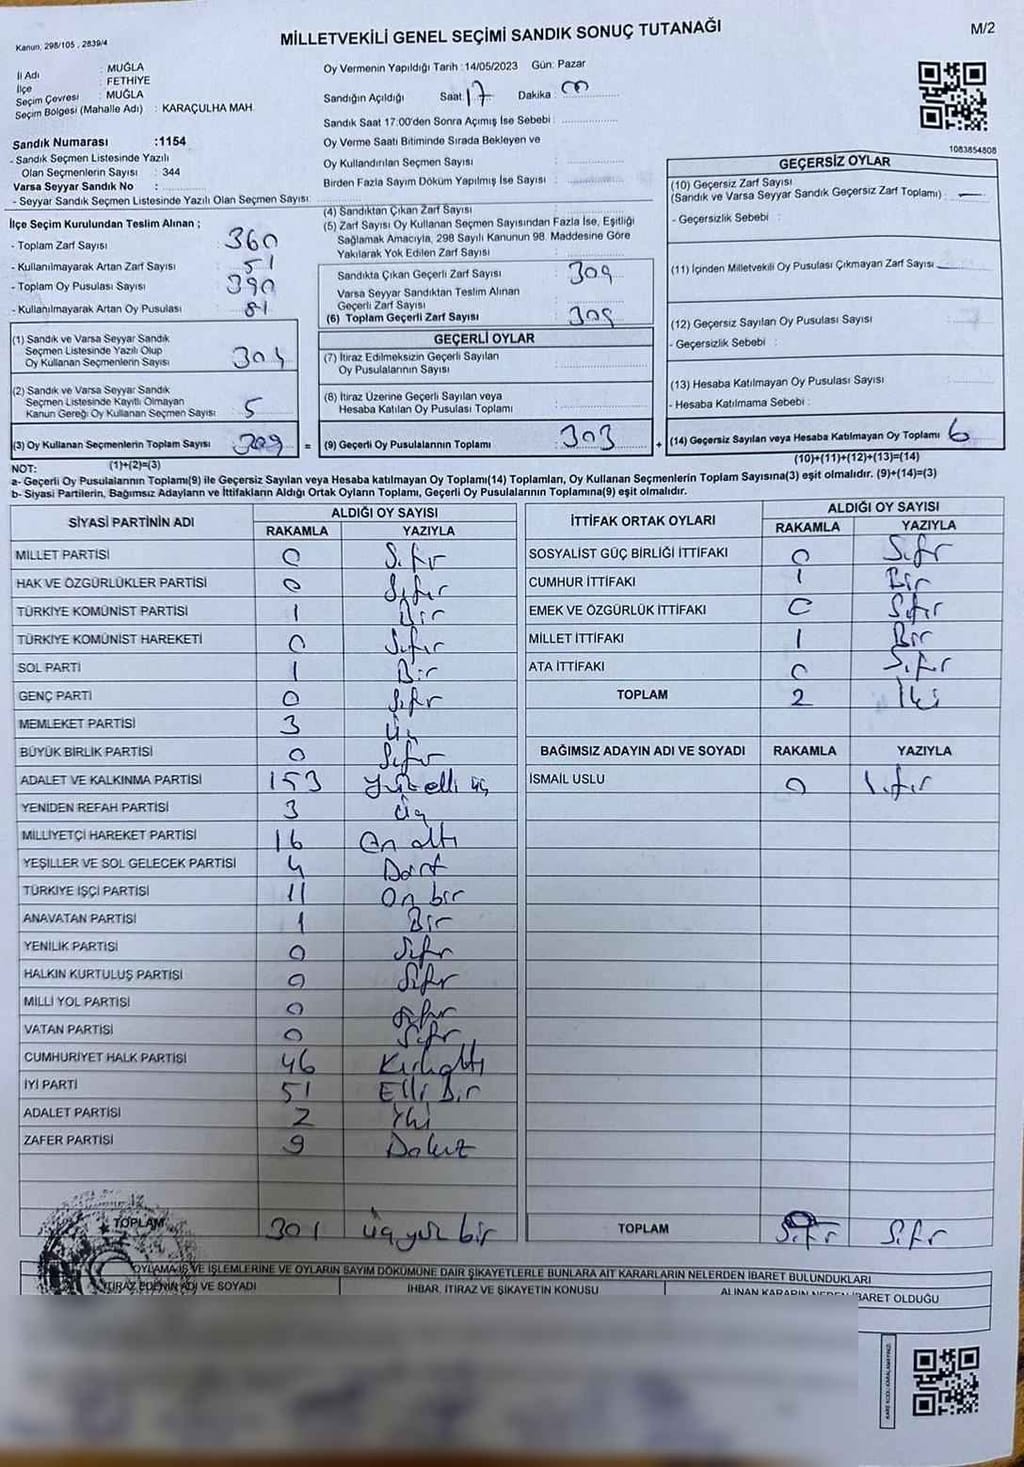 Kanun, 298/105 , 2839/4
MİLLETVEKİLİ GENEL SEÇİMİ SANDIK SONUÇ TUTANAĞI
M/2
İl Adı : MUĞLA
İlçe : FETHİYE
Seçim Çevresi : MUĞLA
Seçim Bölgesi (Mahalle Adı) : KARAÇULHA MAH.
Sandık Numarası :1154
- Sandık Seçmen Listesinde Yazılı
Olan Seçmenlerin Sayısı : 344
Varsa Seyyar Sandık No :
- Seyyar Sandık Seçmen Listesinde Yazılı Olan Seçmen Sayısı:
Oy Vermenin Yapıldığı Tarih :14/05/2023 Gün: Pazar
Sandığın Açıldığı Saat 17 Dakika : 00
Sandık Saat 17:00'den Sonra Açımış İse Sebebi :
Oy Verme Saati Bitiminde Sırada Bekleyen ve
Oy Kullandırılan Seçmen Sayısı :
Birden Fazla Sayım Döküm Yapılmış İse Sayısı :
1083854808
İlçe Seçim Kurulundan Teslim Alınan ;
- Toplam Zarf Sayısı : 360
- Kullanılmayarak Artan Zarf Sayısı : 51
- Toplam Oy Pusulası Sayısı : 390
- Kullanılmayarak Artan Oy Pusulası : 81
(1) Sandık ve Varsa Seyyar Sandık
Seçmen Listesinde Yazılı Olup
Oy Kullanan Seçmenlerin Sayısı : 304
(2) Sandık ve Varsa Seyyar Sandık
Seçmen Listesinde Kayıtlı Olmayan
Kanun Gereği Oy Kullanan Seçmen Sayısı : 5
(3) Oy Kullanan Seçmenlerin Toplam Sayısı : 309
(4) Sandıktan Çıkan Zarf Sayısı :
(5) Zarf Sayısı Oy Kullanan Seçmen Sayısından Fazla İse, Eşitliği
Sağlamak Amacıyla, 298 Sayılı Kanunun 98. Maddesine Göre
Yakılarak Yok Edilen Zarf Sayısı :
Sandıkta Çıkan Geçerli Zarf Sayısı : 309
Varsa Seyyar Sandıktan Teslim Alınan
Geçerli Zarf Sayısı :
(6) Toplam Geçerli Zarf Sayısı : 309
GEÇERLİ OYLAR
(7) İtiraz Edilmeksizin Geçerli Sayılan
Oy Pusulalarının Sayısı :
(8) İtiraz Üzerine Geçerli Sayılan veya
Hesaba Katılan Oy Pusulası Toplamı :
= (9) Geçerli Oy Pusulalarının Toplamı : 303
GEÇERSİZ OYLAR
(10) Geçersiz Zarf Sayısı
(Sandık ve Varsa Seyyar Sandık Geçersiz Zarf Toplamı) :
- Geçersizlik Sebebi :
(11) İçinden Milletvekili Oy Pusulası Çıkmayan Zarf Sayısı :
(12) Geçersiz Sayılan Oy Pusulası Sayısı :
- Geçersizlik Sebebi :
(13) Hesaba Katılmayan Oy Pusulası Sayısı :
- Hesaba Katılmama Sebebi :
+ (14) Geçersiz Sayılan veya Hesaba Katılmayan Oy Toplamı : 6
NOT: (1)+(2)=(3)
(10)+(11)+(12)+(13)=(14)
a- Geçerli Oy Pusulalarının Toplamı(9) ile Geçersiz Sayılan veya Hesaba katılmayan Oy Toplamı(14) Toplamları, Oy Kullanan Seçmenlerin Toplam Sayısına(3) eşit olmalıdır. (9)+(14)=(3)
b- Siyasi Partilerin, Bağımsız Adayların ve İttifakların Aldığı Ortak Oyların Toplamı, Geçerli Oy Pusulalarının Toplamına(9) eşit olmalıdır.
SİYASİ PARTİNİN ADI ALDIĞI OY SAYISI
RAKAMLA YAZIYLA
MİLLET PARTİSİ 0 Sıfır
HAK VE ÖZGÜRLÜKLER PARTİSİ 0 Sıfır
TÜRKİYE KOMÜNİST PARTİSİ 1 Bir
TÜRKİYE KOMÜNİST HAREKETİ 0 Sıfır
SOL PARTİ 1 Bir
GENÇ PARTİ 0 Sıfır
MEMLEKET PARTİSİ 3 Üç
BÜYÜK BİRLİK PARTİSİ 0 Sıfır
ADALET VE KALKINMA PARTİSİ 153 Yüz elli üç
YENİDEN REFAH PARTİSİ 3 Üç
MİLLİYETÇİ HAREKET PARTİSİ 16 On altı
YEŞİLLER VE SOL GELECEK PARTİSİ 4 Dört
TÜRKİYE İŞÇİ PARTİSİ 11 On bir
ANAVATAN PARTİSİ 1 Bir
YENİLİK PARTİSİ 0 Sıfır
HALKIN KURTULUŞ PARTİSİ 0 Sıfır
MİLLİ YOL PARTİSİ 0 Sıfır
VATAN PARTİSİ 0 Sıfır
CUMHURİYET HALK PARTİSİ 46 Kırkaltı
İYİ PARTİ 51 Elli Bir
ADALET PARTİSİ 2 İki
ZAFER PARTİSİ 9 Dokuz
TOPLAM 301 üçyüz bir
İTTİFAK ORTAK OYLARI ALDIĞI OY SAYISI
RAKAMLA YAZIYLA
SOSYALİST GÜÇ BİRLİĞİ İTTİFAKI 0 Sıfır
CUMHUR İTTİFAKI 1 Bir
EMEK VE ÖZGÜRLÜK İTTİFAKI 0 Sıfır
MİLLET İTTİFAKI 1 Bir
ATA İTTİFAKI 0 Sıfır
TOPLAM 2 İki
BAĞIMSIZ ADAYIN ADI VE SOYADI RAKAMLA YAZIYLA
İSMAİL USLU 0 Sıfır
TOPLAM Sıfır Sıfır
OYLAMA İŞ VE İŞLEMLERİNE VE OYLARIN SAYIM DÖKÜMÜNE DAİR ŞİKAYETLERLE BUNLARA AİT KARARLARIN NELERDEN İBARET BULUNDUKLARI
İTİRAZ EDENİN ADI VE SOYADI İHBAR, İTİRAZ VE ŞİKAYETİN KONUSU ALINAN KARARIN NEDEN İBARET OLDUĞU